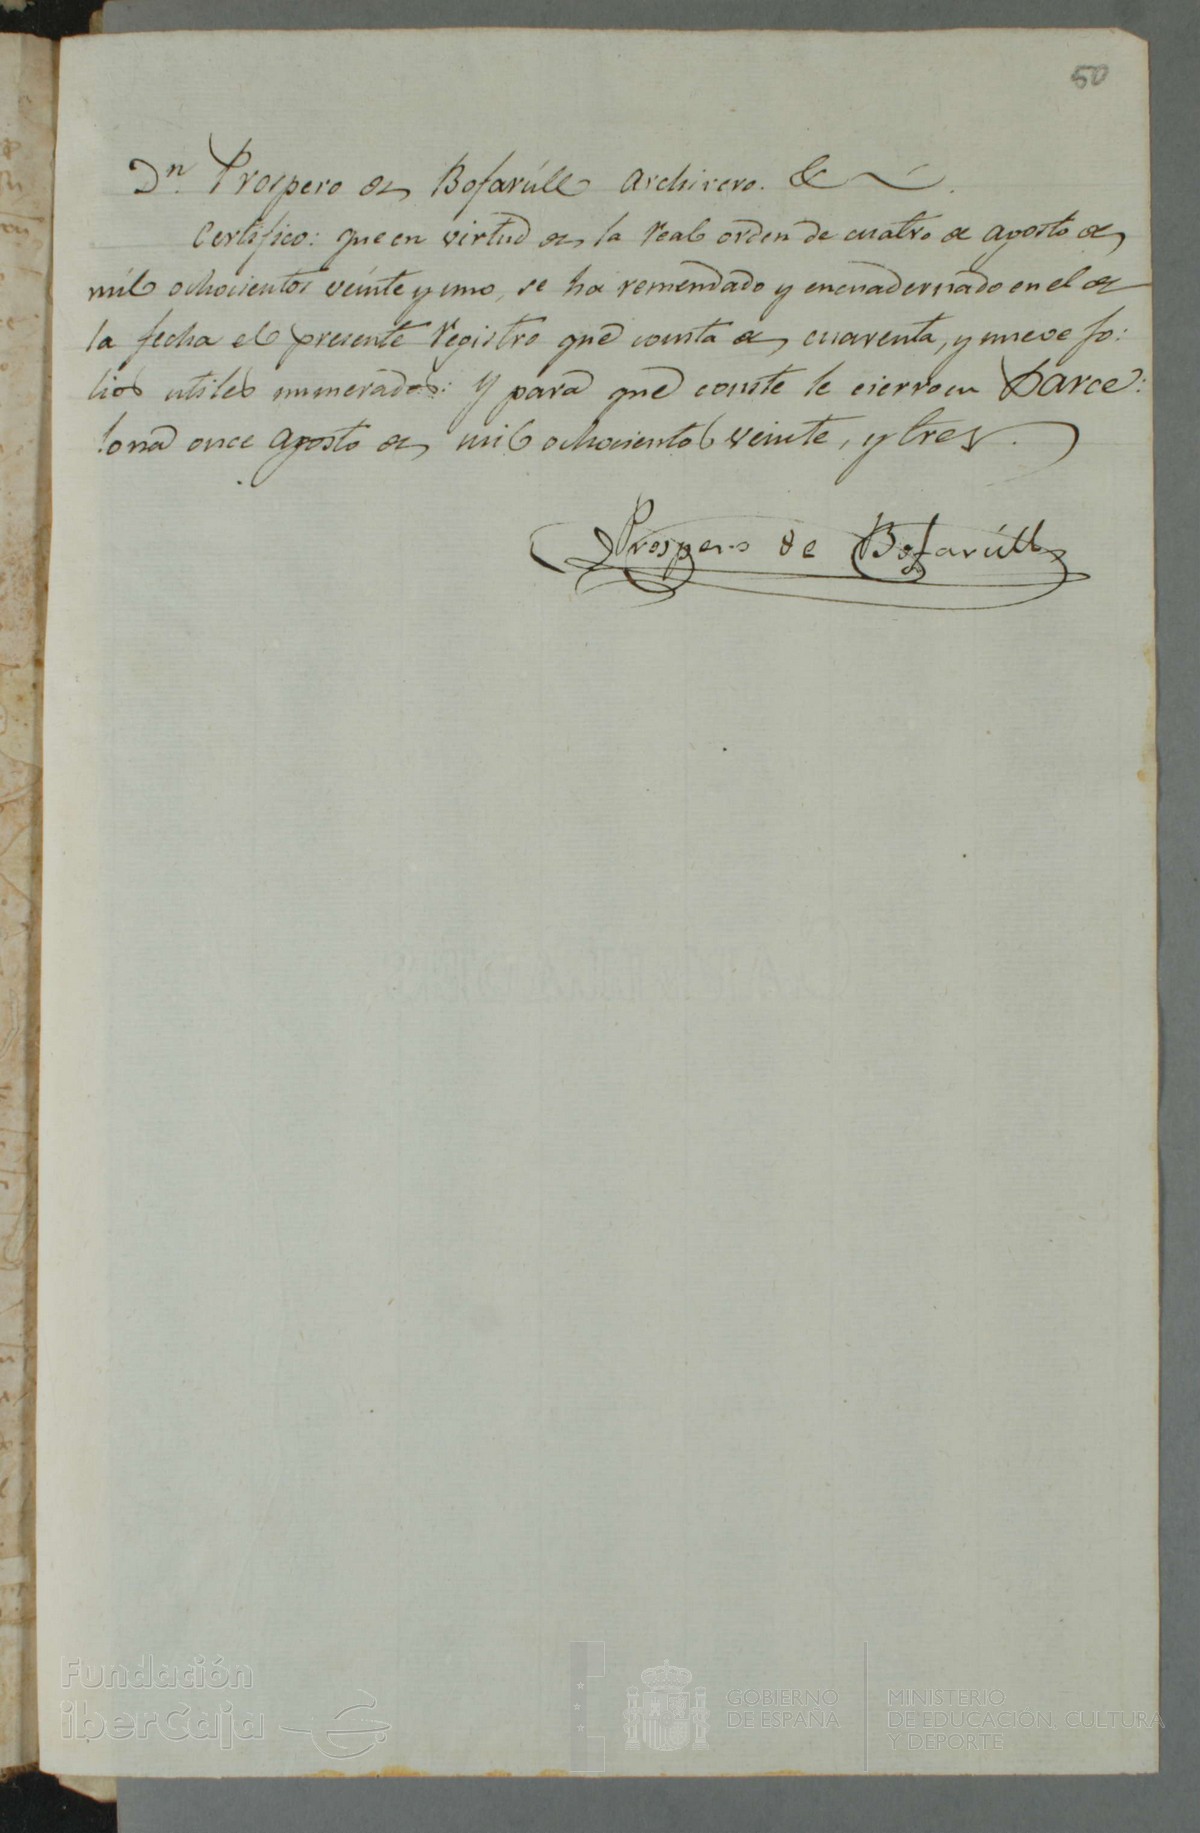 50
Dn. Prospero de Bofarúll Archivero. &
Certifico: que en virtud de la Real orden de cuatro de agosto de
mil ochocientos veinte y uno, se ha remendado y encuadernado en el de
la fecha el presente Registro que consta de cuarenta, y nueve fo:
lios utiles numerados: Y para que conste le cierro en Barce:
lona once Agosto de mil ochocientos veinte, y tres.
Prospero de Bofarúll
Fundación
iberCaja
GOBIERNO
DE ESPAÑA
MINISTERIO
DE EDUCACIÓN, CULTURA
Y DEPORTE